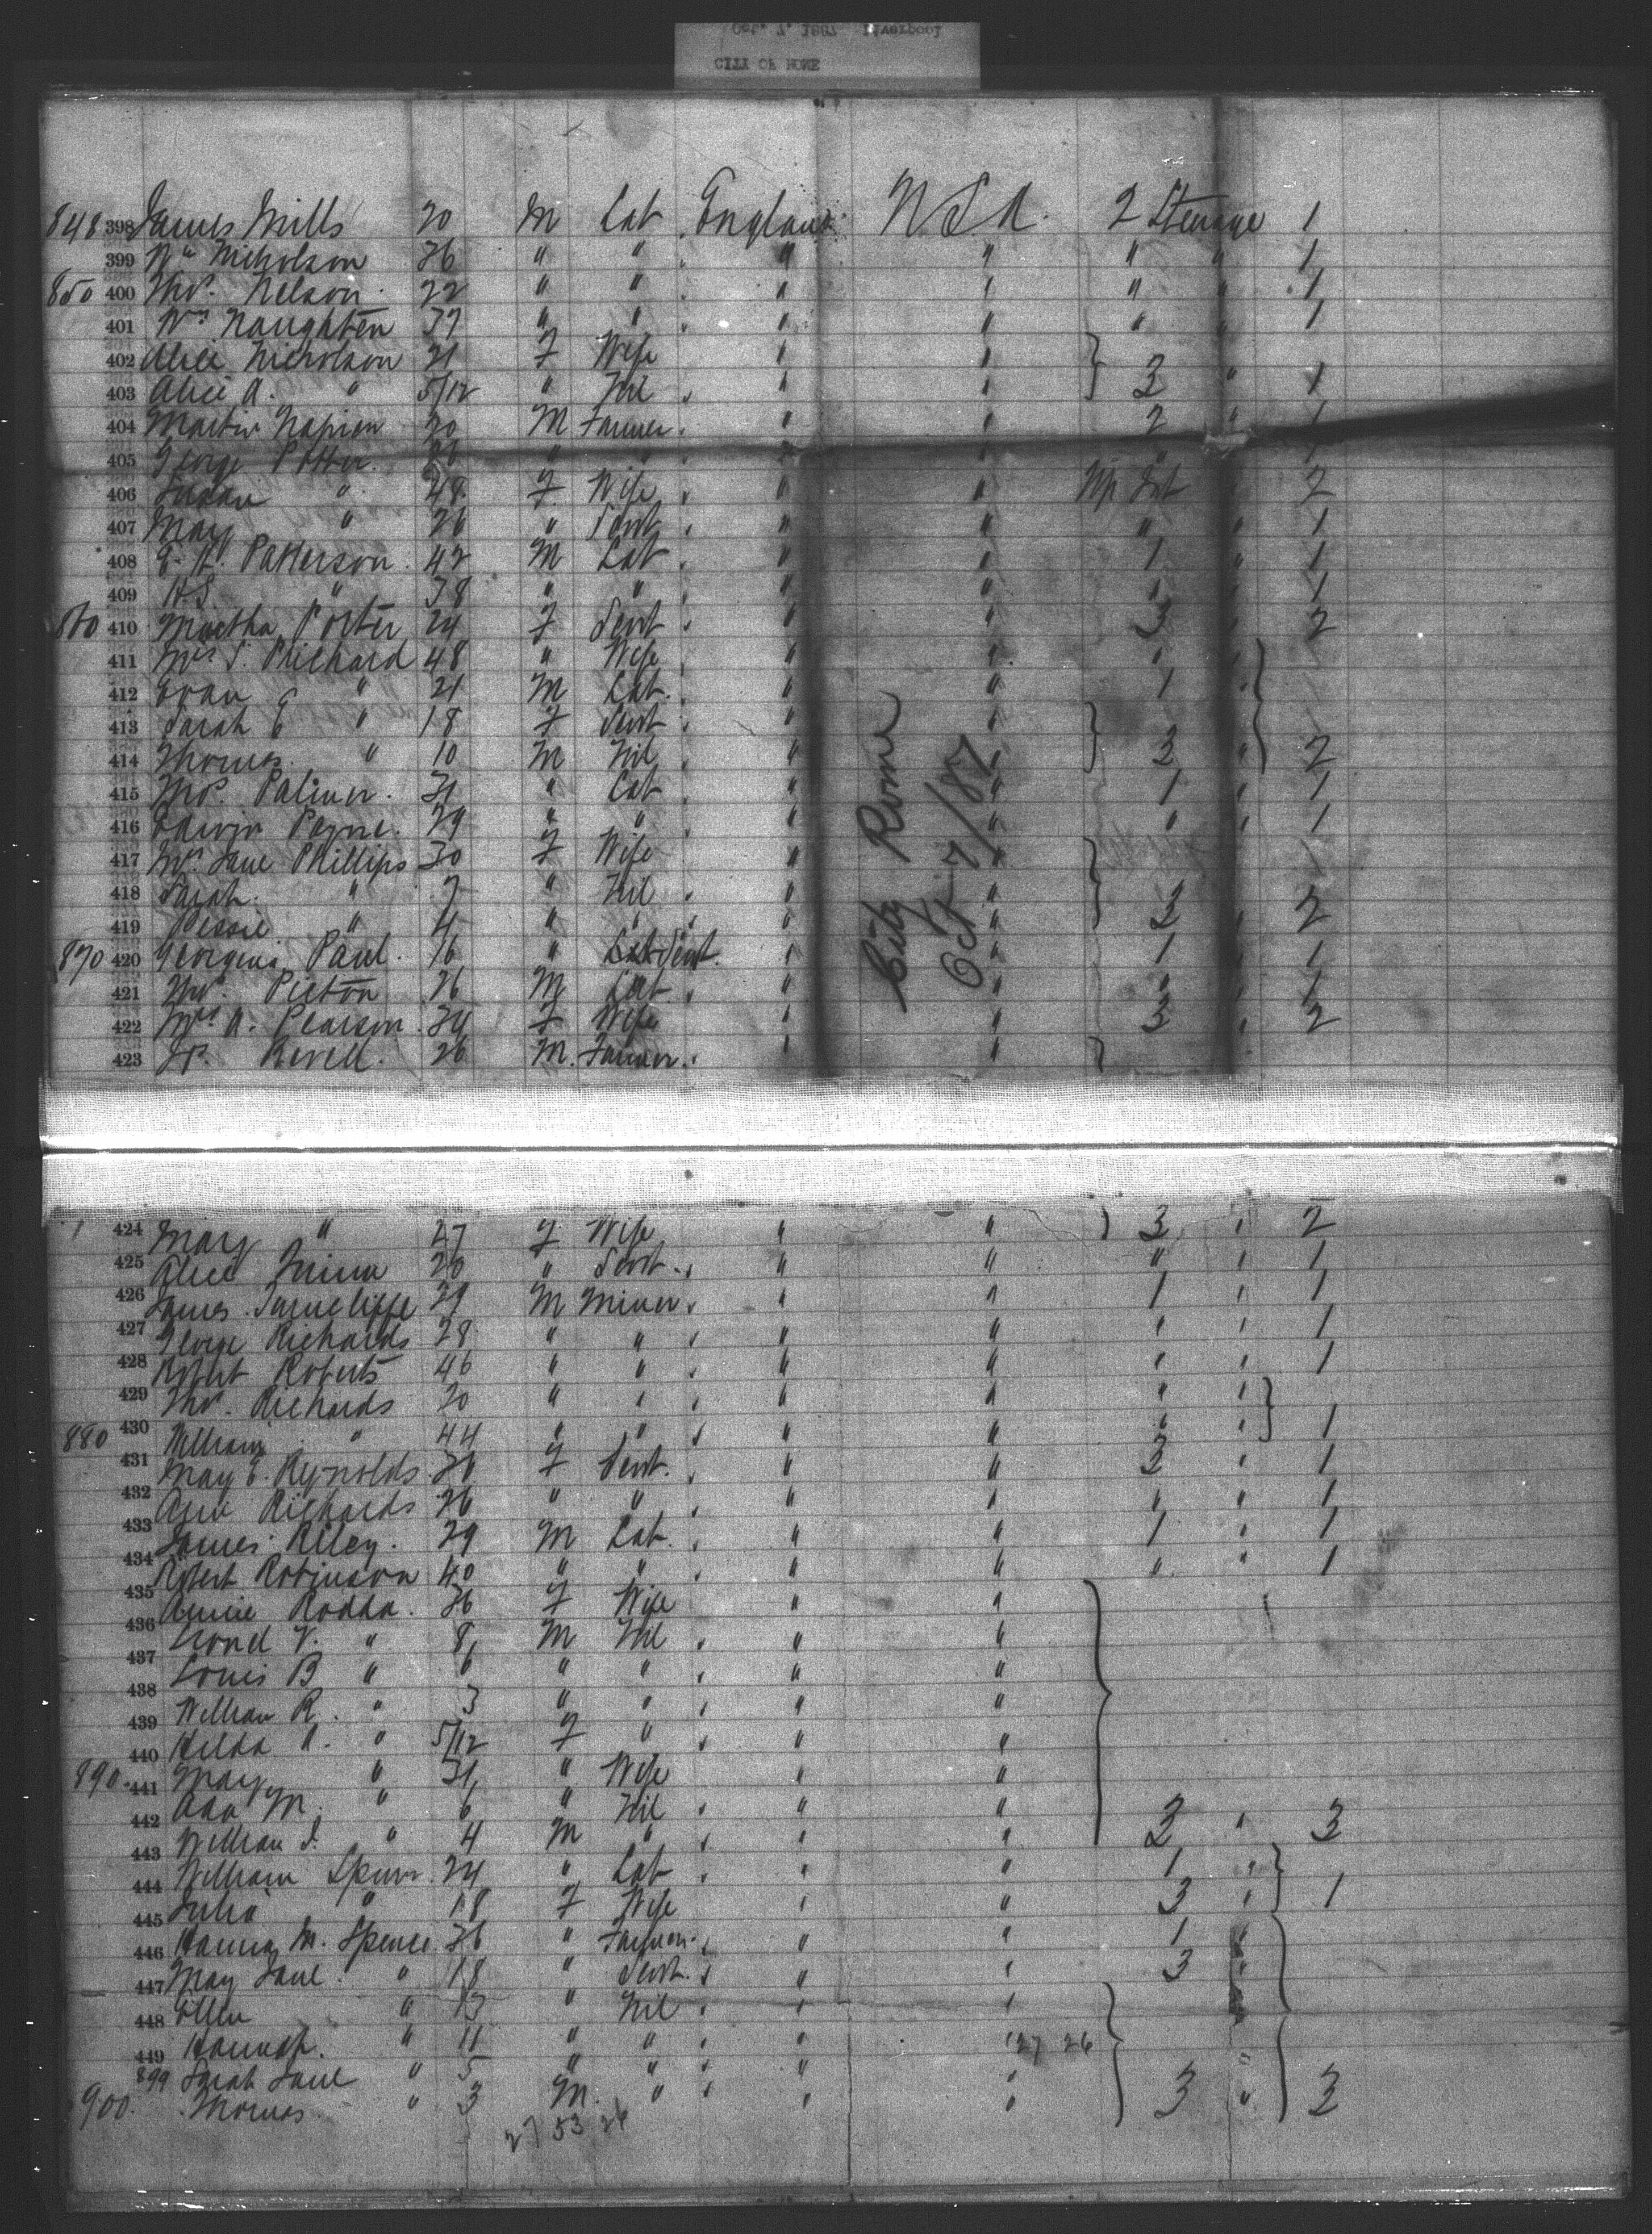 Oct. 7, 1887 Liverpool
CITY OF ROME
848 398 James Mills 20 M Lab England U.S.A. 2 Steerage 1
399 Wm Nicholson 26 " " " " " " 1
850 400 Thos. Nelson 22 " " " " " " 1
401 Wm Naughten 37 " " " " " " 1
402 Alice Nicholson 21 F Wife " "
403 Alice A. " 5/12 " Nil " " 3 " 1
404 Martin Napier 20 M Farmer " " 2 " 1
405 George Potter " " " " " 1
406 " 48 F Wife " " Up Int 2
407 Mary " 26 " Servt " " " " 1
408 G. H. Patterson 42 M Lab " " 1 " 1
409 H.S. " 38 " " " " 1 " 1
860 410 Martha Porter 24 F Servt " " 3 " 2
411 Mrs S. Prichard 48 " Wife " " " "
412 Evan G " 21 M Lab " " 1 "
413 Sarah E " 18 F Servt " "
414 Thomas " 10 M Nil " " 3 " 2
415 Thos. Palmer 31 " Lab " " 1 " 1
416 Edwin Payne 29 " " " " " " 1
417 Mrs Jane Phillips 30 F Wife " "
418 Sarah " 7 " Nil " "
419 Bessie " 4 " " " " 3 " 2
870 420 Georgina Paul 16 " Servt " " 1 " 1
421 Thos. Picton 26 M Lab " " " " 1
422 Mrs A. Pearson 34 F Wife " " 3 " 2
423 Revell 26 M Farmer " "
City Rome
Oct 7/87
424 Mary " 27 F Wife " " 3 " 2
425 Alice 20 " Servt " " " " 1
426 James Turncliffe 29 M Miner " " 1 " 1
427 George Richards 28 " " " " " " 1
428 Robert Roberts 46 " " " " " " 1
429 Thos. Richards 20 " " " " " "
880 430 William " 44 " " " " " " 1
431 Mary E. Reynolds F Servt " " 3 " 1
432 Ann Richards 26 " " " " " " 1
433 James Riley 29 M Lab " " 1 " 1
434 Robert Robinson 40 " " " " " " 1
435 Annie Rodda 36 F Wife " "
436 V. " 8 M Nil " "
437 Louis B " 6 " " " "
438 William R. " 3 " " " "
439 Hilda A. " 5/12 F " " "
890 440 Mary " 31 " Wife " "
441 Ada M. " 6 " Nil " "
442 William J. " 4 M " " " 3 " 3
443 William 24 " Lab " " 1 "
444 Julia " 18 F Wife " " 3 " 1
445 Hanna M. Spence 36 " " " 1 "
446 Mary Jane " 18 " Servt " " 3 "
447 Ellen " 13 " Nil " "
448 Hannah " 11 " " " " 27 26
449 899 Sarah Jane " 5 " " " "
900 Thomas " 3 M " " " 3 " 3
27 53 26